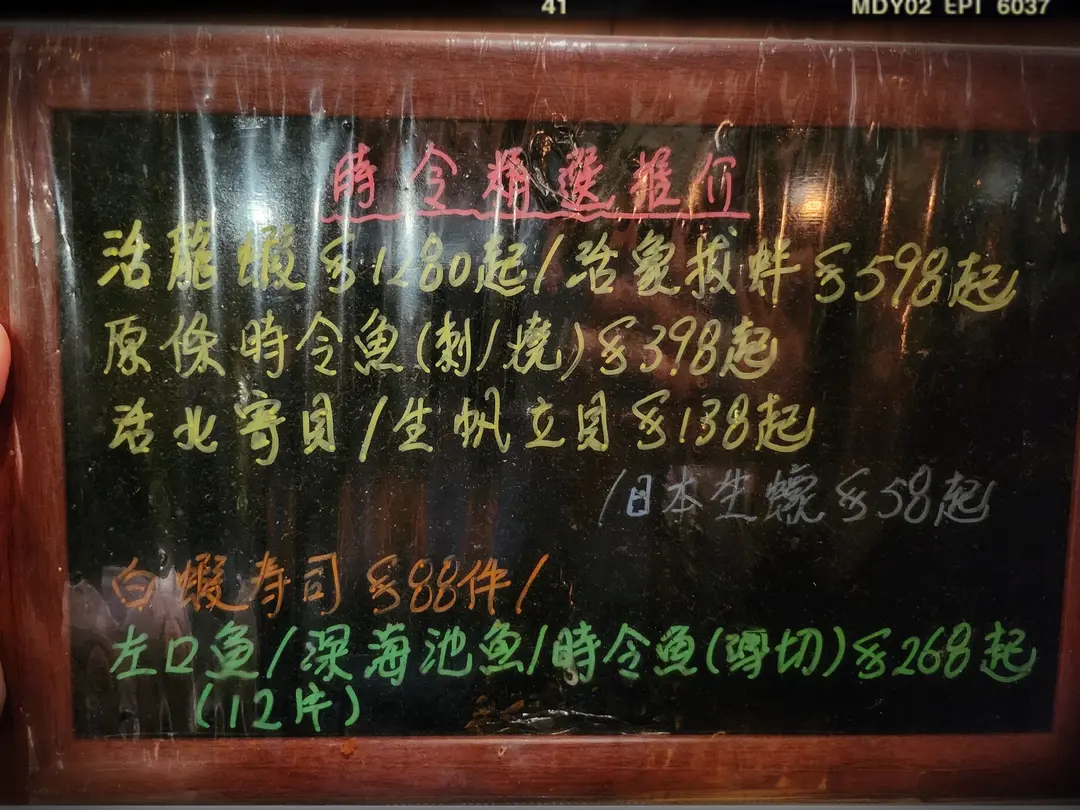 41 MDY02 EPI 6037
時令精選推介
活龍蝦$1280起/活象拔蚌$598起
原條時令魚(刺/燒)$398起
活北寄貝/生帆立貝$138起
/日本生蠔$58起
白蝦寿司$88件/
左口魚/深海池魚/時令魚(薄切)$268起
(12片)